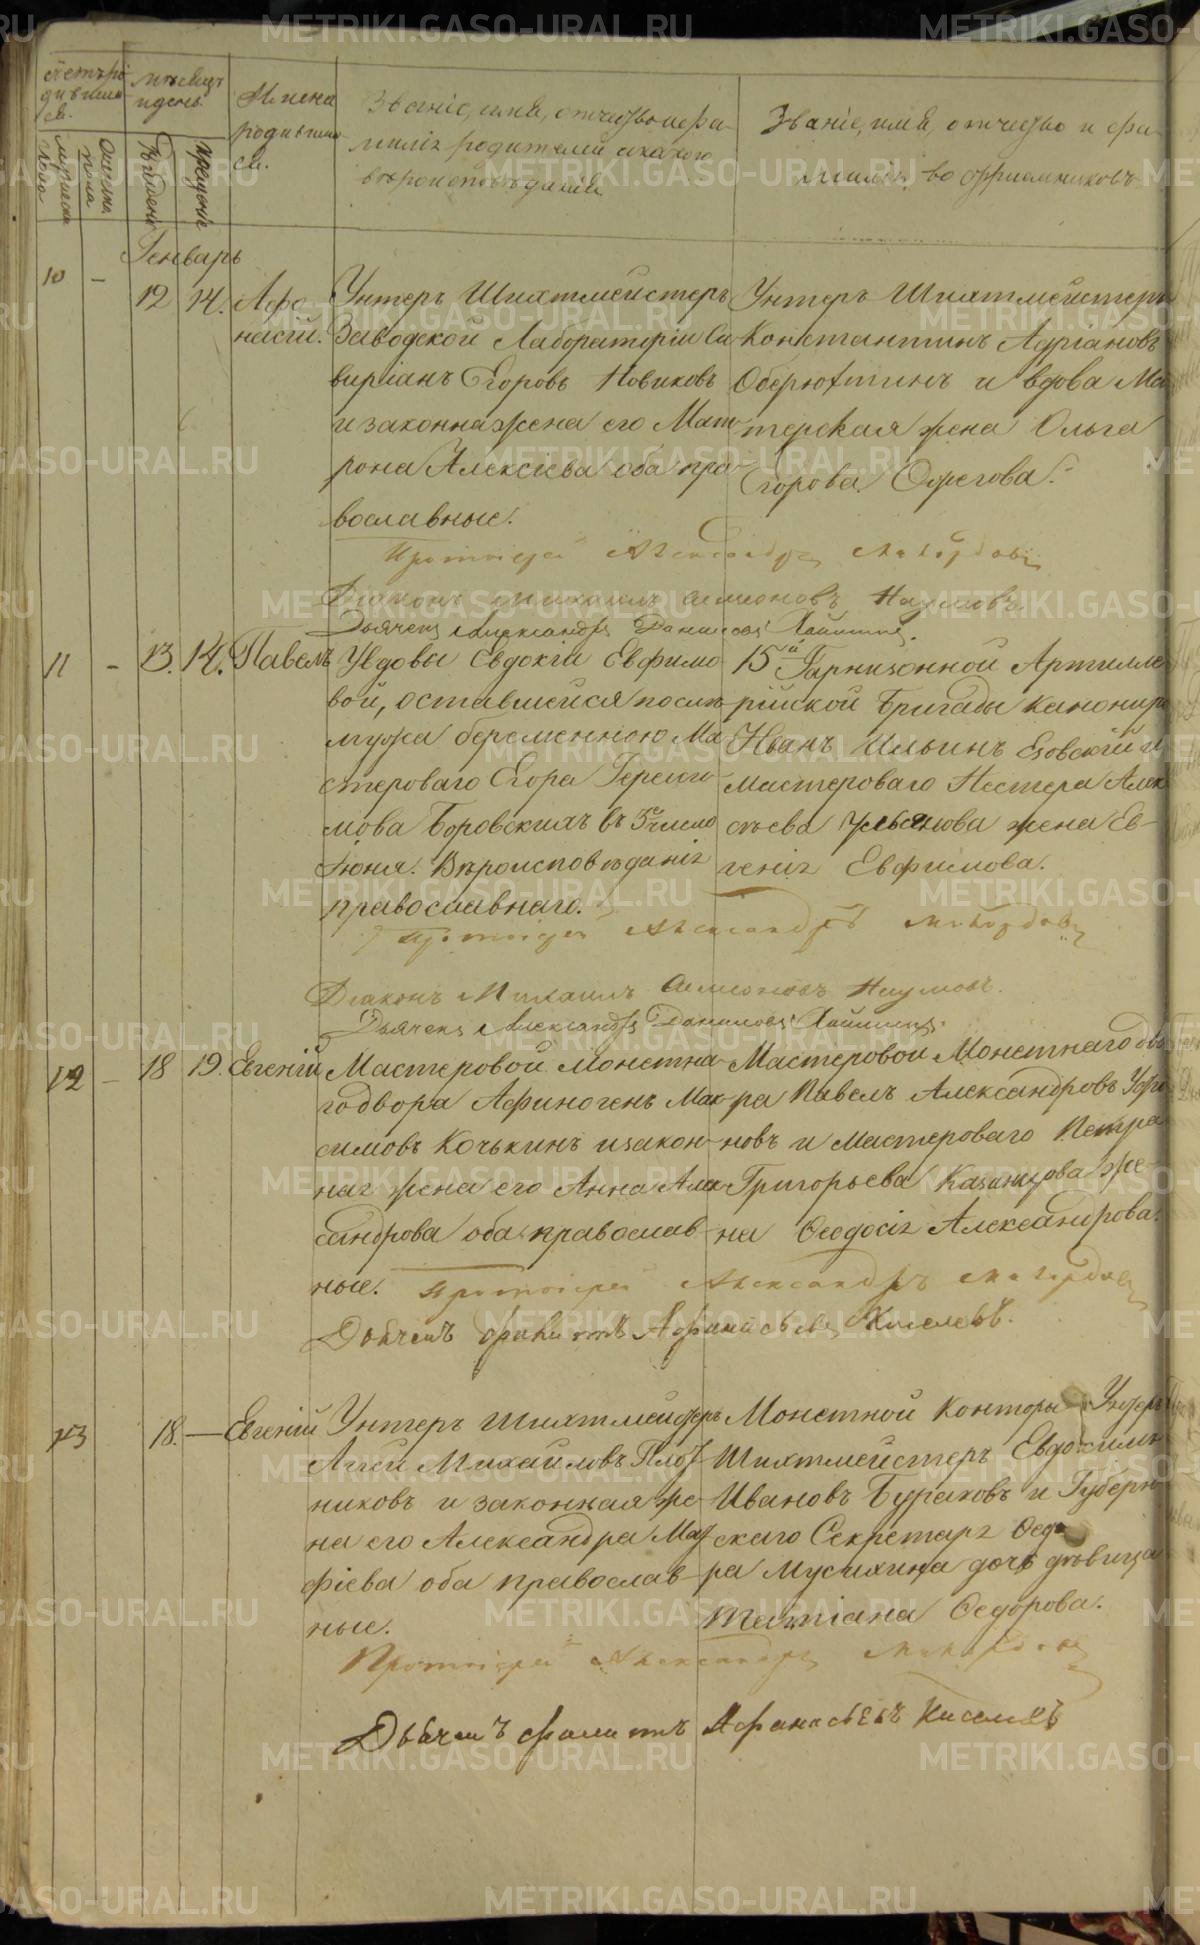 Счетъ ро
дившихся.
мужеска
пола
женска
пола
мѣсяцъ
и день
Рожденія
Крещенія
Имена
родивших
ся.
Званіе, имя, отчество и фа-
милія родителей и какого
вѣроисповѣданія
Званіе, имя, отчество и фа-
милія, воспріемниковъ
Генварь
10 - 12 14. Афо
насій.
Унтеръ Шихтмейстеръ
Заводской Лабораторіи Са
виріанъ Егоровъ Новиковъ
и законна жена его Мат
рона Алексіева оба пра
вославные.
Унтеръ Шихтмейстеръ
Константинъ Адріановъ
Оберюхтинъ и вдова Ма
терская жена Ольга
Егорова Ожегова.
Протоіерей Александръ
Діаконъ Михаилъ Симеоновъ Наумовъ
Дьячекъ Александръ Даниловъ
11 - 13. 14. Павелъ
У вдовы Евдокіи Евфимо
вой, оставшейся послѣ
мужа беременною Ма
стероваго Егора
мова Боровскихъ въ 3е число
Іюня. Вѣроисповѣданія
православнаго.
15й Гарнизонной Артилле
рійской Бригады канониръ
Иванъ Ильинъ Езовскій и
мастероваго Нестера Алек
сѣева Ульянова жена Ев-
генія Евфимова.
Протоіерей Александръ
Діаконъ Михаилъ Симеоновъ Наумовъ.
Дьячекъ Александръ Даниловъ
12 - 18 19. Евгеній
Мастеровой Монетна
го двора Афиногенъ Мак
симовъ Кочькинъ и закон
ная жена его Анна Алек
сандрова оба православ
ные.
Мастеровой Монетнаго дво
ра Павелъ Александровъ
новъ и Мастероваго Петра
Григорьева Казанцова же-
на Ѳеодосія Александрова.
Протоіерей Александръ
Дьячекъ Афанасьевъ Киселевъ.
13 18. — Евгеній
Унтеръ Шихтмейстеръ
Аггей Михайловъ Плот
никовъ и законная же
на его Александра Мат
фіева оба православ
ные.
Монетной Конторы Унтеръ
Шихтмейстеръ Евдокимъ
Ивановъ Бураковъ и Губерн
скаго Секретаря Ѳедо
ра Мусихина дочь дѣвица
Татіана Ѳедорова.
Протоіерей Александръ
Дьячекъ Афанасьевъ Киселевъ
METRIKI.GASO-URAL.RU